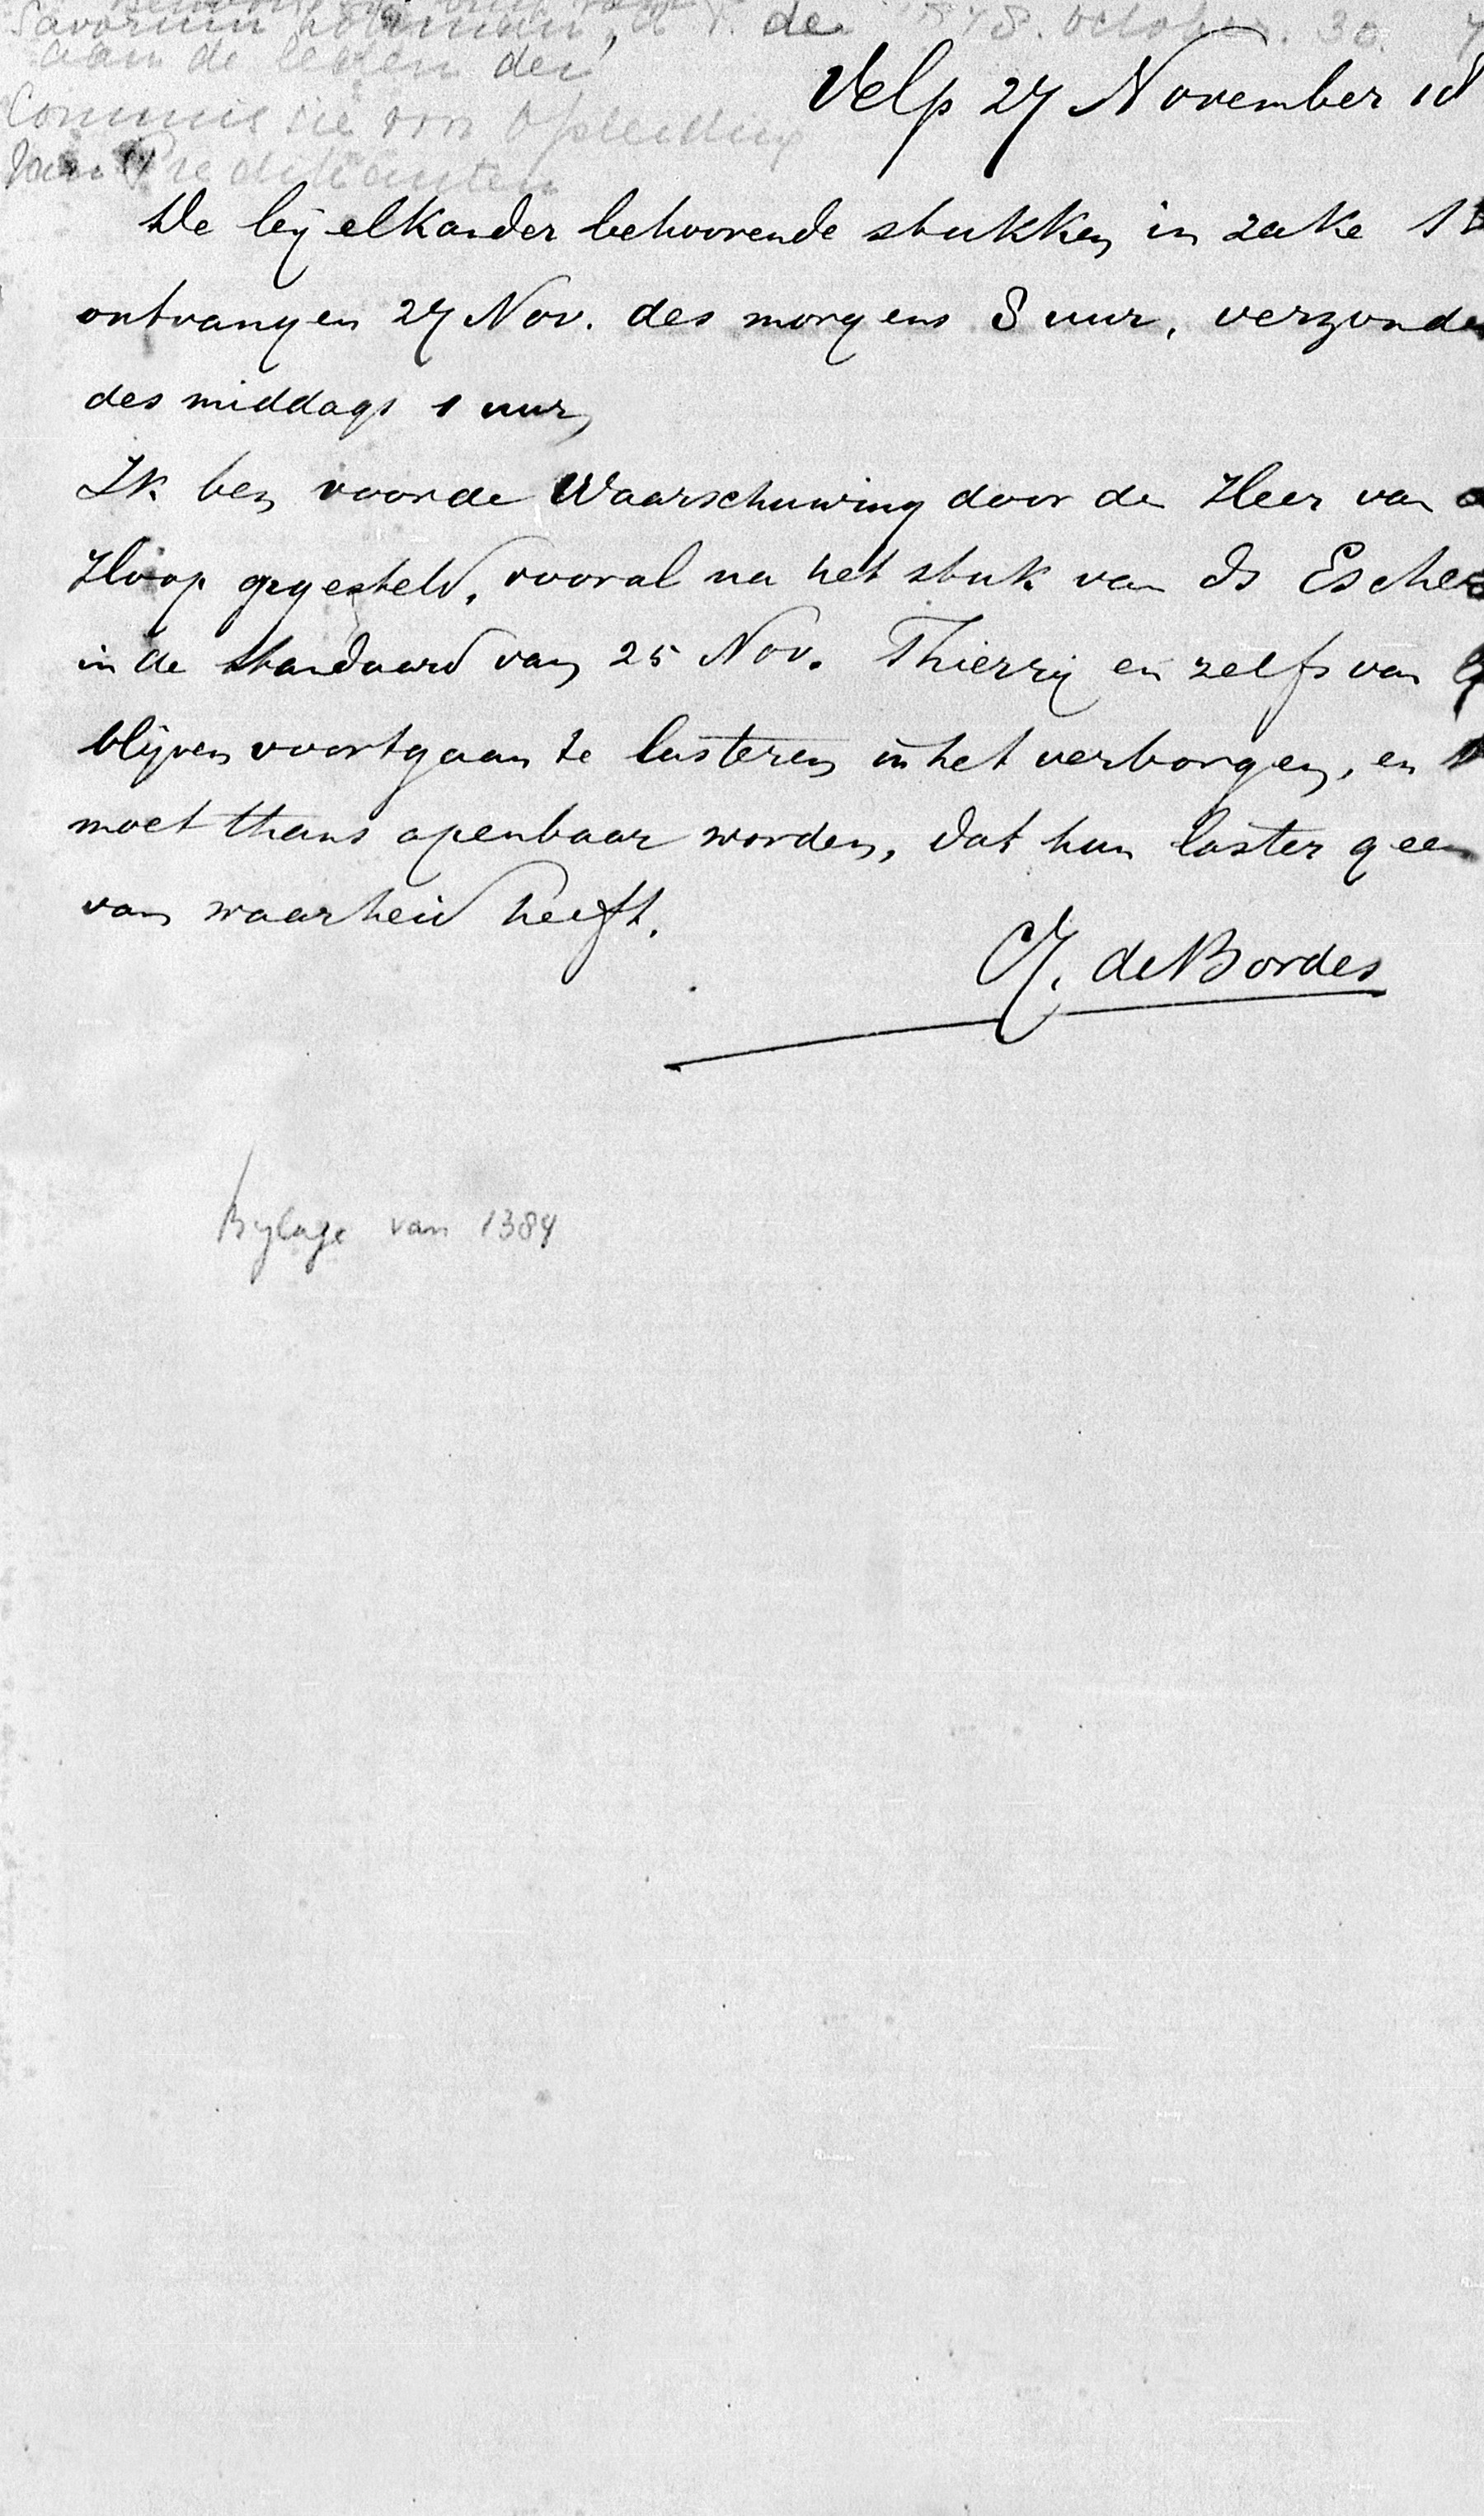 Savornin Lohman, de 1878. october. 30.
aan de leden der
Commissie van Opleiding
van Predikanten
Velp 27 November 18
De bij elkander behoorende stukken in zake
ontvangen 27 Nov. des morgens 8 uur, verzonden
des middags 1 uur,
Ik ben voor de Waarschuwing door de Heer van
Hoop opgesteld, vooral na het stuk van Ds Escher
in de Standaard van 25 Nov. Thierry en zelfs van
blijven voortgaan te lasteren in het verborgen, en
moet thans openbaar worden, dat hun laster geen
van waarheid heeft.
CJ. de Bordes
Bylage van 1384